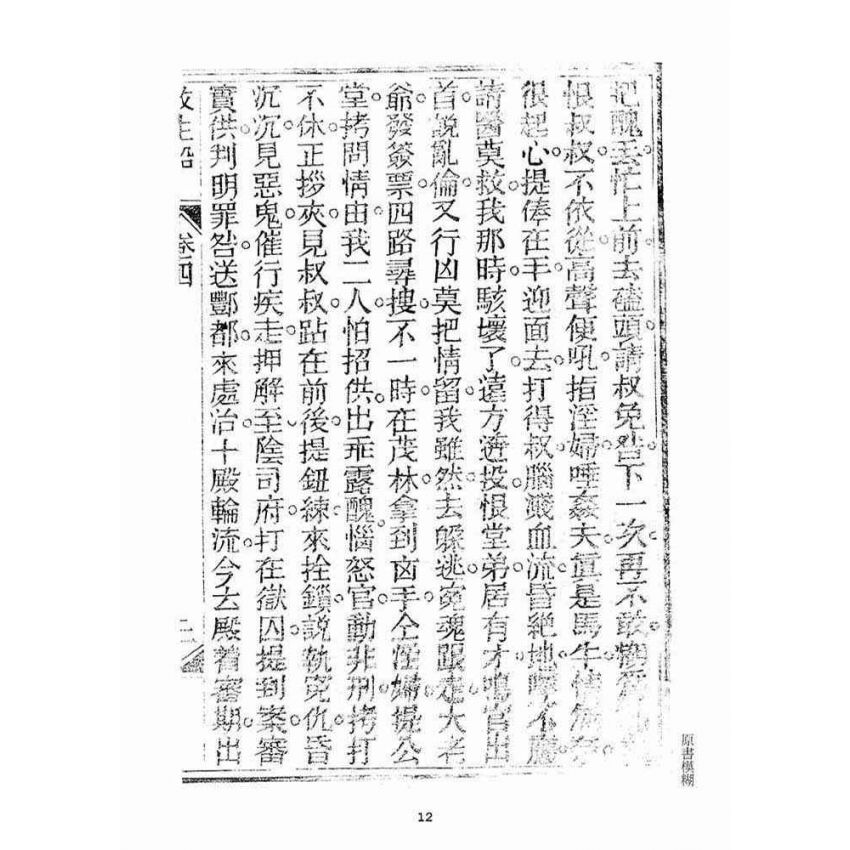 把醜丢忙上前去磕頭請叔免咎下一次再不敢
恨叔叔不依從高聲便吼指淫婦唾姦夫眞是馬牛情
很起心提俸在手迎面去打得叔腦濺血流昏絶地
請醫莫救我那時駭壞了遠方逃投恨堂弟居有才鳴官出
首說亂倫又行凶莫把情留我雖然去躲逃冤魂跟走大老
爺發簽票四路尋搜不一時在茂林拿到凶手仝淫婦提公
堂拷問情由我二人怕招供出乖露醜惱怒官動非刑拷打
不休正拶夾見叔叔跕在前後提鈕練來拴鎖說執寃仇昏
沉沉見惡鬼催行疾走押解至陰司府打在獄囚提到案審
實供判明罪咎送酆都來處治十殿輪流今六殿着審期出
救生船 卷四
原書模糊
12